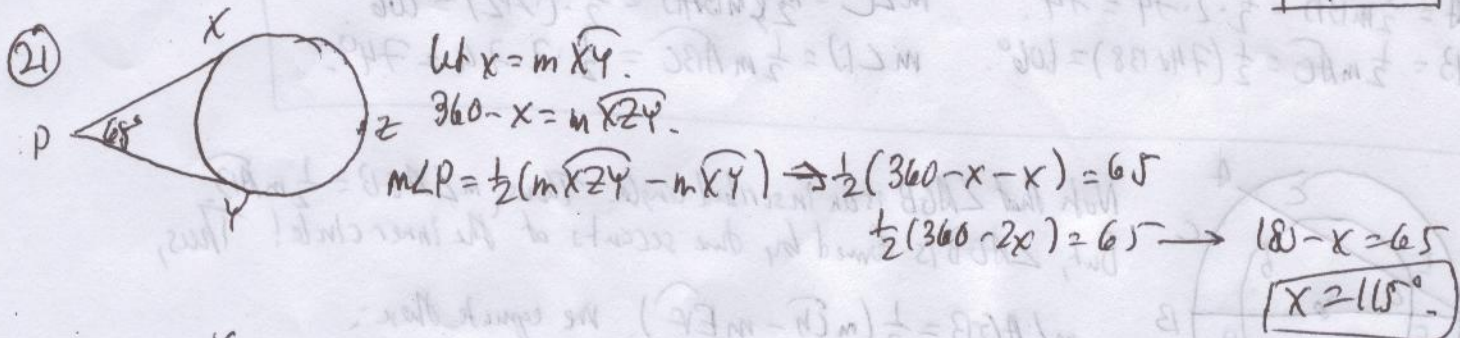 21
X
P
65°
Z
Y
let x = m XY.
360 - x = m XZY.
m∠P = ½(m XZY - m XY) → ½(360 - x - x) = 65
½(360 - 2x) = 65 → 180 - x = 65
x = 115°.